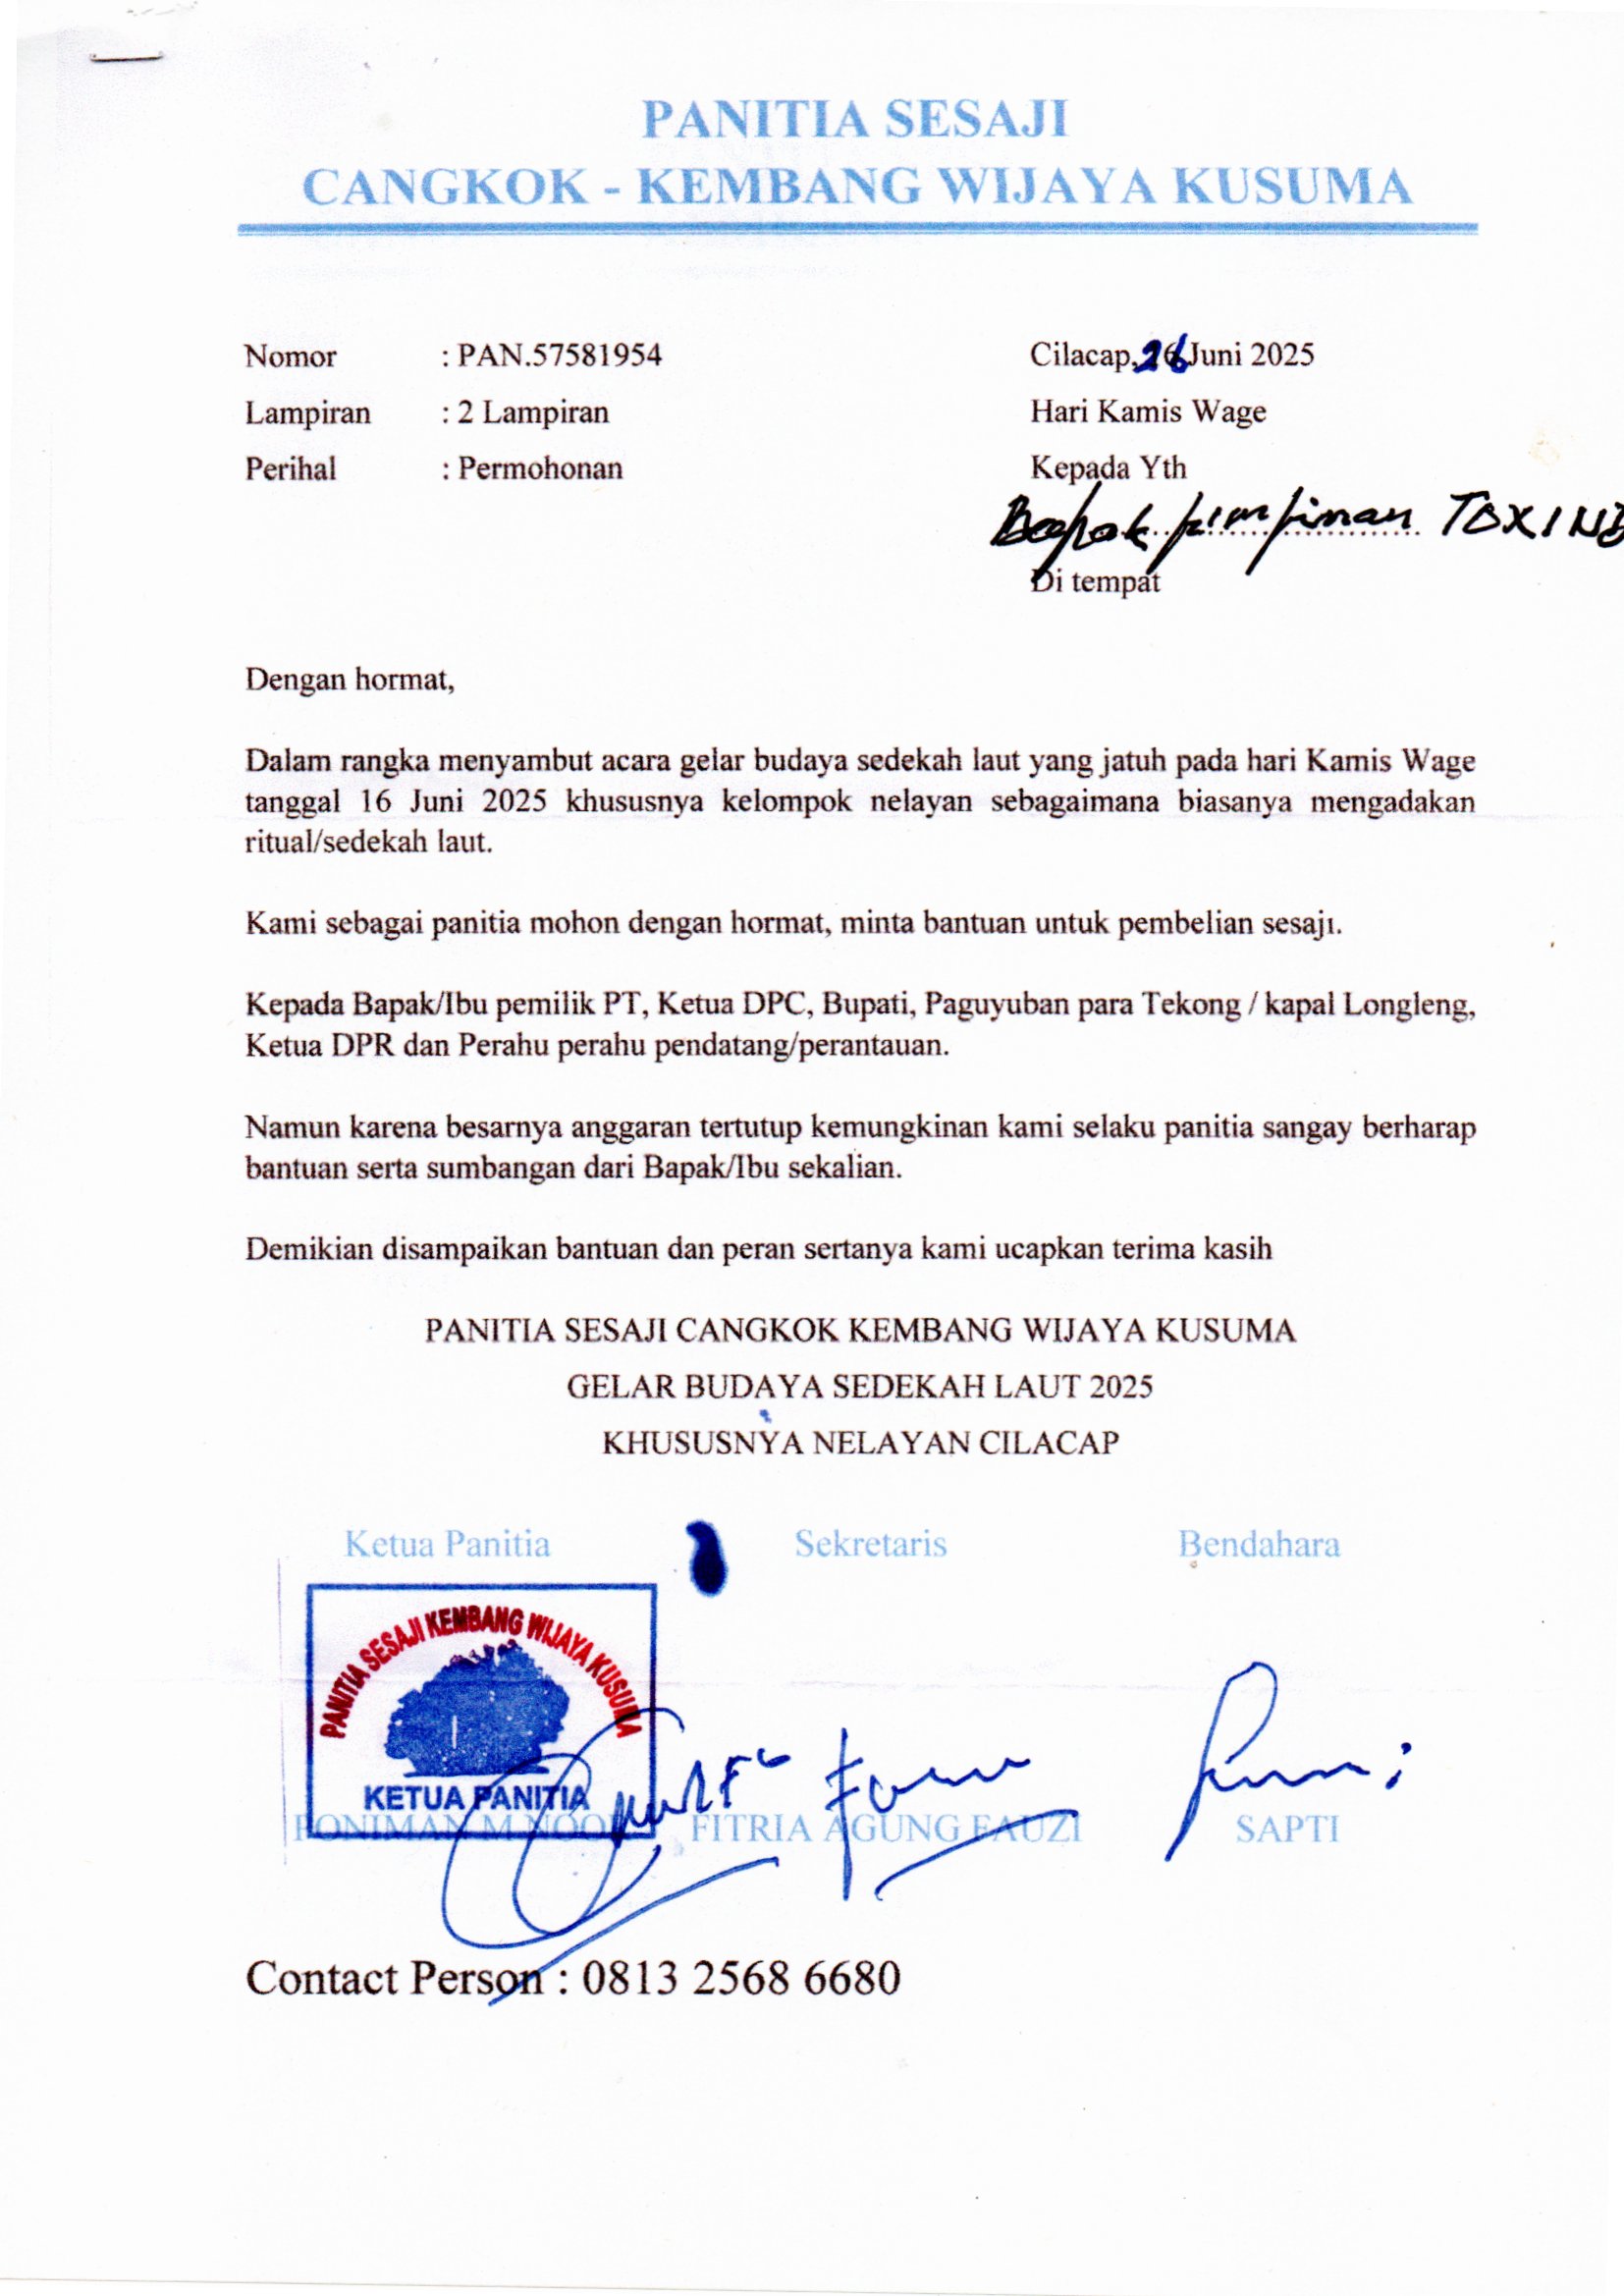 PANITIA SESAJI
CANGKOK - KEMBANG WIJAYA KUSUMA
Nomor : PAN.57581954
Lampiran : 2 Lampiran
Perihal : Permohonan
Cilacap, 26 Juni 2025
Hari Kamis Wage
Kepada Yth
Bapak pimpinan
Di tempat
Dengan hormat,
Dalam rangka menyambut acara gelar budaya sedekah laut yang jatuh pada hari Kamis Wage
tanggal 16 Juni 2025 khususnya kelompok nelayan sebagaimana biasanya mengadakan
ritual/sedekah laut.
Kami sebagai panitia mohon dengan hormat, minta bantuan untuk pembelian sesaji.
Kepada Bapak/Ibu pemilik PT, Ketua DPC, Bupati, Paguyuban para Tekong / kapal Longleng,
Ketua DPR dan Perahu perahu pendatang/perantauan.
Namun karena besarnya anggaran tertutup kemungkinan kami selaku panitia sangay berharap
bantuan serta sumbangan dari Bapak/Ibu sekalian.
Demikian disampaikan bantuan dan peran sertanya kami ucapkan terima kasih
PANITIA SESAJI CANGKOK KEMBANG WIJAYA KUSUMA
GELAR BUDAYA SEDEKAH LAUT 2025
KHUSUSNYA NELAYAN CILACAP
Ketua Panitia Sekretaris Bendahara
PANITIA SESAJI KEMBANG WIJAYA KUSUMA
KETUA PANITIA
PONIMAN M FITRIA AGUNG FAUZI SAPTI
Contact Person : 0813 2568 6680